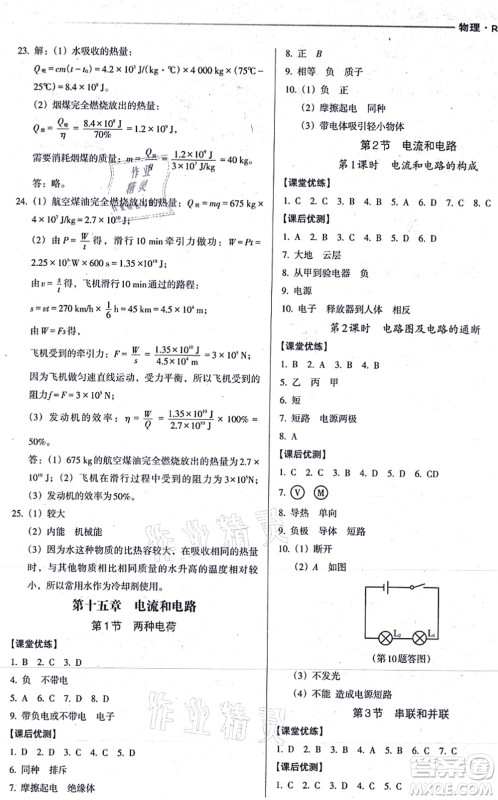 物理·R
23. 解：（1）水吸收的热量：
Q吸=cm(t-t₀)=4.2×10³ J/(kg·℃)×4 000 kg×(75℃-
25℃)=8.4×10⁸ J。
（2）烟煤完全燃烧放出的热量：
Q放=Q吸/η=8.4×10⁸ J/70%=1.2×10⁹ J，
需要消耗烟煤的质量：m=Q放/q=1.2×10⁹ J/3×10⁷ J/kg=40 kg。
答：略。
24.（1）航空煤油完全燃烧放出的热量：Q放=mq=675 kg
×4×10⁷ J/kg=2.7×10¹⁰ J；
（2）由P=W/t得，滑行10 min牵引力做功：W=Pt=
2.25×10⁷ W×600 s=1.35×10¹⁰ J，
由v=s/t得，飞机滑行10 min通过的路程：
s=vt=270 km/h×1/6 h=45 km=4.5×10⁴ m，
由W=Fs得，
飞机受到的牵引力：F=W/s=1.35×10¹⁰ J/4.5×10⁴ m=3×10⁵ N，
因为飞机做匀速直线运动，所以飞机受到的阻力f=F=
3×10⁵ N；
（3）发动机的效率：η=W/Q=1.35×10¹⁰ J/2.7×10¹⁰ J×100%=
50%。
答：（1）675 kg的航空煤油完全燃烧放出的热量是2.7×
10¹⁰ J；（2）飞机在滑行过程中受到的阻力是3×10⁵ N；
（3）发动机的效率为50%。
25.（1）较大
（2）内能 机械能
（3）因为水这种物质的比热容较大，在吸收的热量与
其他物质相同的情况下，水升高的温度相对较低，所
以常用水作为冷却剂使用。
第十五章 电流和电路
第1节 两种电荷
【课堂优练】
1. B 2. C 3. D
4. 负 不带电
5. A 6. C 7. D 8. D
9. 带负电或不带电 电子
【课后优测】
1. D 2. D 3. C 4. A 5. D
6. 同种 排斥
7. 摩擦起电 绝缘体
8. 正 B
9. 相等 负 质子
10.（1）负 正
（2）摩擦起电 同种
（3）带电体吸引轻小物体
第2节 电流和电路
第1课时 电流和电路的构成
【课堂优练】
1. C 2. D 3. B 4. B 5. A 6. D 7. C
【课后优测】
1. C 2. A 3. B 4. D 5. D 6. A
7. 大地 云层
8. 从甲到验电器 负
9. 电源
10. 电子 释放器到人体 相反
第2课时 电路图及电路的通断
【课堂优练】
1. B 2. C 3. D 4. D
5. 乙 丙 甲
6. 短
7. 短路 电源两极
8. A
【课后优测】
1. C 2. C 3. B 4. D 5. D 6. D
7. V M
8. 导热 单向
9. 负极 导体 短路
10.（1）断开
（2）A 如图
L₂ L₁
（第10题答图）
（3）不发光
（4）不能 造成电源短路
第3节 串联和并联
【课堂优练】
1. D 2. D 3. D 4. B 5. C 6. B 7. C
【课后优测】
1. C 2. A 3. C 4. D 5. A 6. D
作业精灵
作业精灵
作业精灵